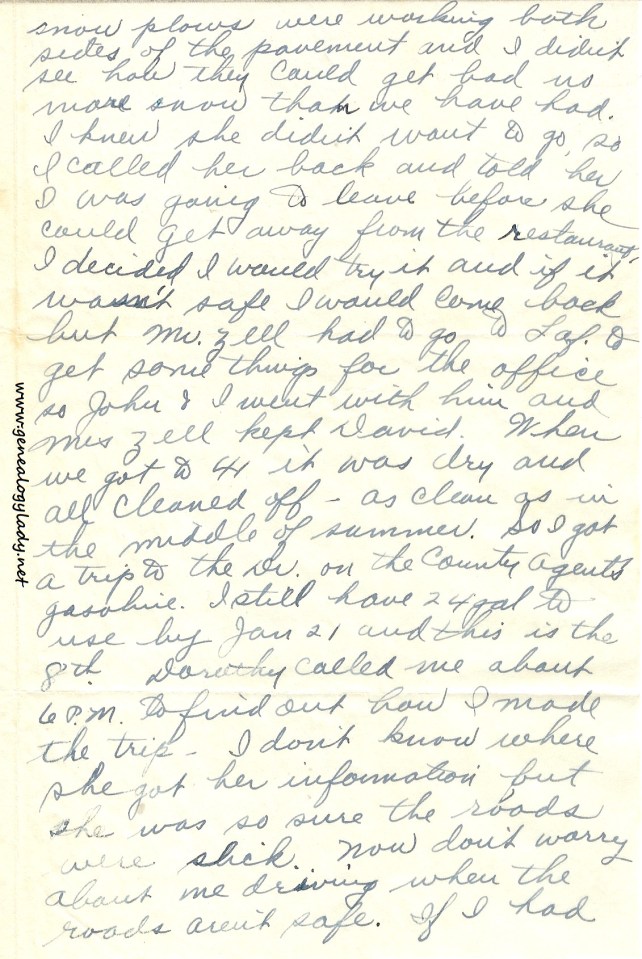 snow plows were working both
sides of the pavement and I didn't
see how they could get bad no
more snow than we have had.
I knew she didn't want to go, so
I called her back and told her
I was going to leave before she
could get away from the restaurant.
I decided I would try it and if it
wasn't safe I would come back
but Mr. Zell had to go to Laf. to
get some things for the office
so John & I went with him and
Mrs Zell kept David. When
we got to 41 it was dry and
all cleaned off - as clean as in
the middle of summer. So I got
a trip to the Dr. on the County Agent's
gasoline. I still have 24 gal to
use by Jan 21 and this is the
8th. Dorothy called me about
6 P.M. to find out how I made
the trip - I don't know where
she got her information but
she was so sure the roads
were slick. Now don't worry
about me driving when the
roads aren't safe. If I had
www.genealogylady.net